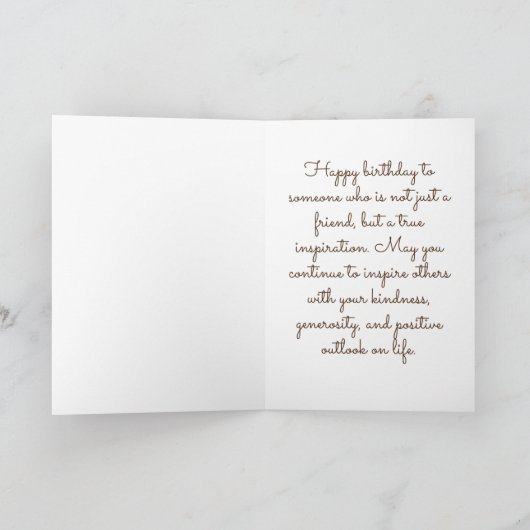 Happy birthday to
someone who is not just a
friend, but a true
inspiration. May you
continue to inspire others
with your kindness,
generosity, and positive
outlook on life.